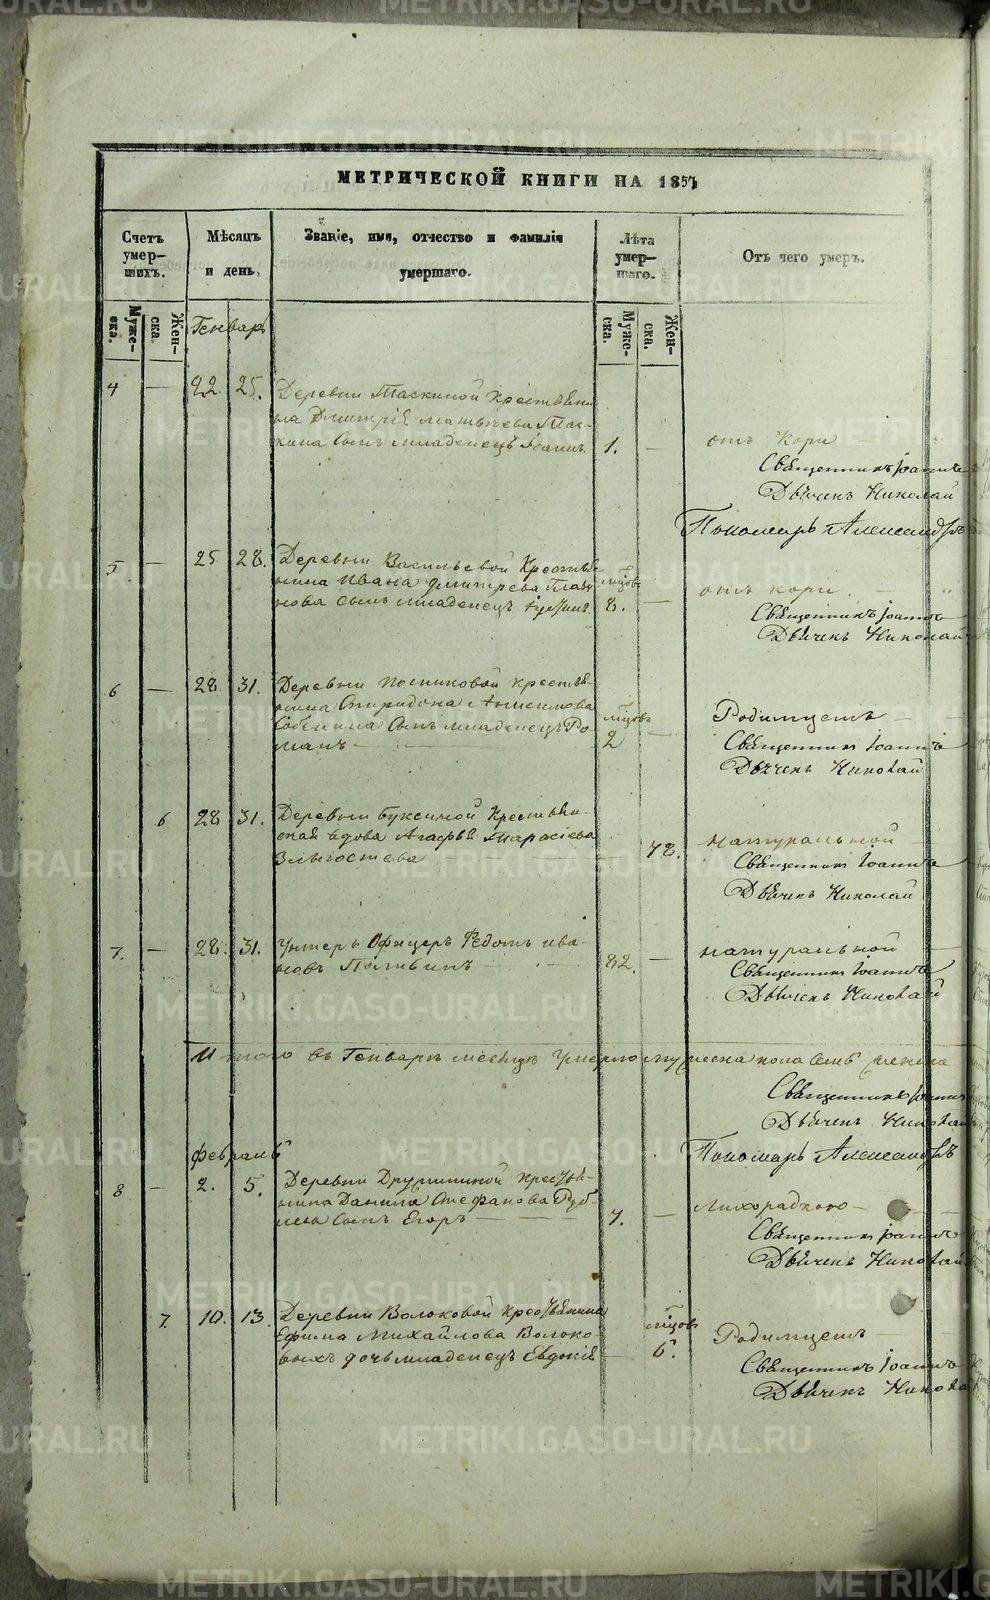 METRIKI.GASO-URAL.RU
МЕТРИЧЕСКОЙ КНИГИ НА 1857
Счетъ умер-шихъ.
Мѣсяцъ и день,
Званіе, имя, отчество и фамилія умершаго.
Лѣта умер-шаго.
Отъ чего умеръ.
Муже-ска.
Жен-ска.
Муже-ска.
Жен-ска.
Генварь
4 — 22 25. Деревни Маскиной Крестьяни
на Дмитрія Матвѣева Мас-
кина Сынъ младенецъ Іоаннъ. 1. — отъ Кори
Священникъ Іоаннъ
Дьячекъ Николай
Пономарь Александръ
5 — 25 28. Деревни Васильевой Крестья
нина Ивана Дмитрева
нова сынъ младенецъ мцовъ 8. — отъ кори.
Священникъ Іоаннъ
Дьячекъ Николай
6 — 28 31. Деревни Крестья-
нина Спиридона
Собенина Сынъ младенецъ Ро-
манъ мцовъ 2 — Родимцемъ
Священникъ Іоаннъ
Дьячекъ Николай
6 28 31. Деревни Буксиной Крестьян-
ская вдова Агафья Тарасіева
Злыгостева 78. натуральной
Священникъ Іоаннъ
Дьячекъ Николай
7. — 28. 31. Унтеръ Офицеръ Федотъ Ива-
новъ 82. — натуральной
Священникъ Іоаннъ
Дьячекъ Николай
Итого въ Генварѣ месяцѣ Умерло мужеска пола семь женска
Священникъ Іоаннъ
Дьячекъ Николай
Пономарь Александръ
февраль
8 — 2. 5. Деревни Крестья-
нина Данила Стефанова Руб-
лева сынъ Егоръ 7. — Лихорадкою
Священникъ Іоаннъ
Дьячекъ Николай
7. 10. 13. Деревни Волоковой Крестьянина
Ефима Михайлова Волоко-
выхъ дочь младенецъ Евдокія мцовъ 6. Родимцемъ
Священникъ Іоаннъ
Дьячекъ Николай